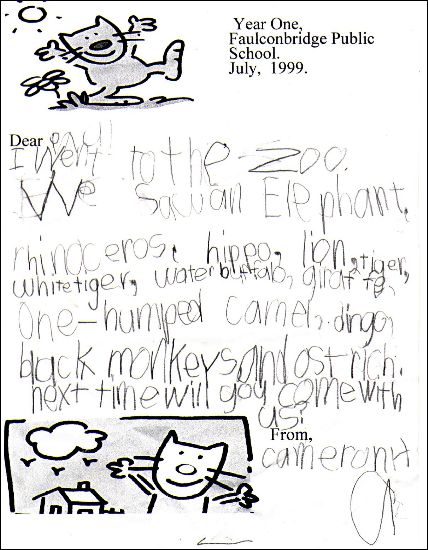 Year One,
Faulconbridge Public
School.
July, 1999.
Dear you!
I went to the zoo.
We saw an Elephant,
rhinoceros, hippo, lion, tiger,
white tiger, water buffalo, giraffe,
One-humped camel, dingo,
black monkeys and ostrich.
next time will you come with
us?
From,
cameron H